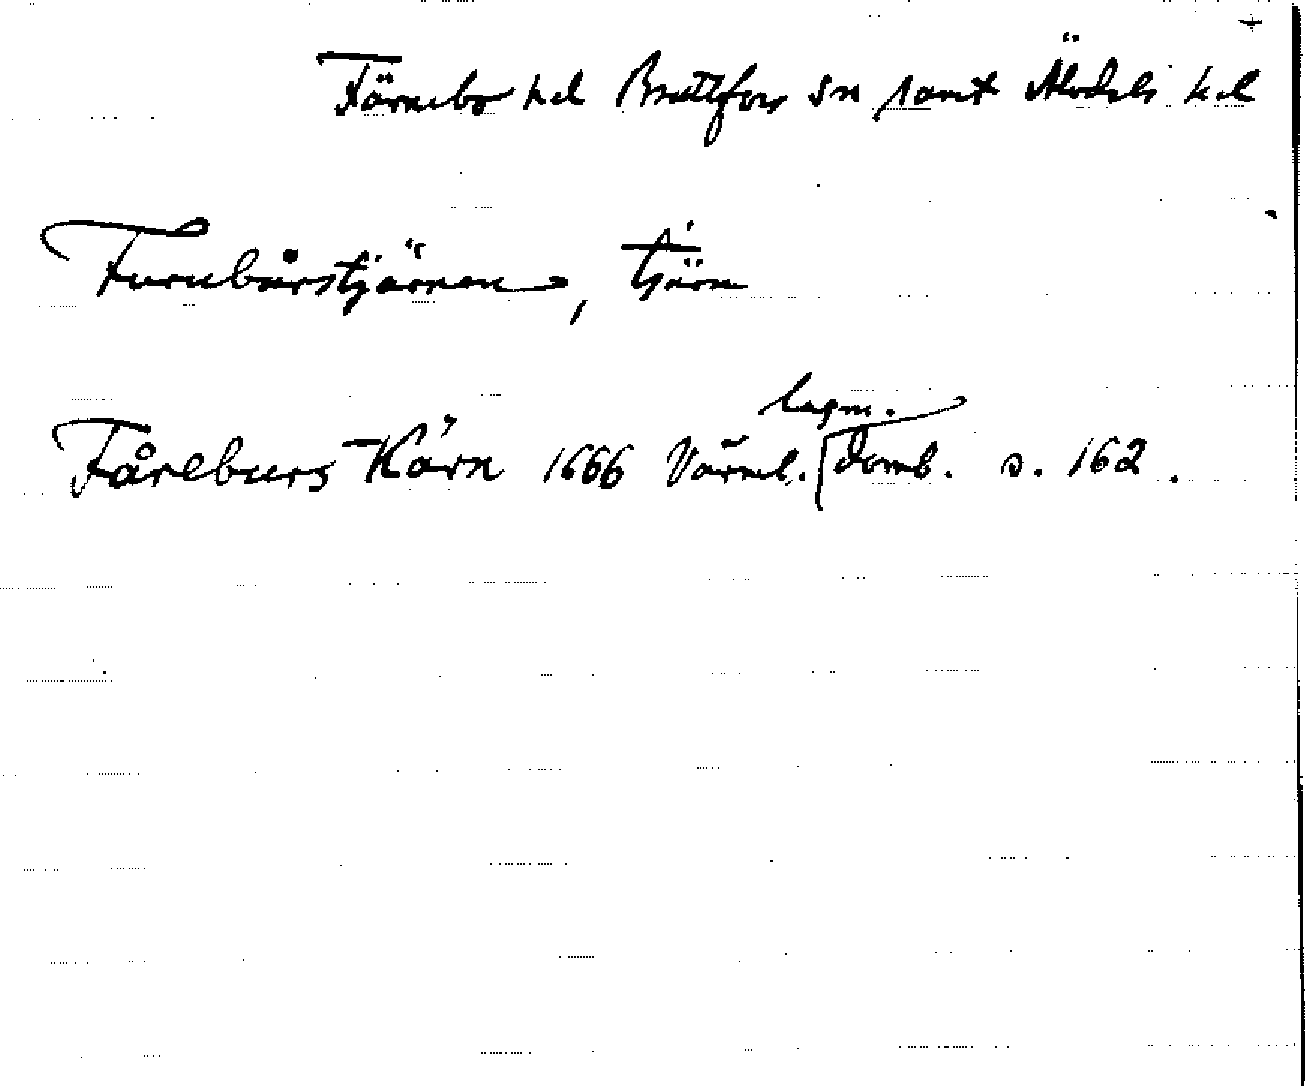 Färnebo hd Brattfors sn samt Älvdals hd
Furubårstjärnen, tjärn
lagm.
Fåreburs Kärn 1666 Värml. domb. s. 162.